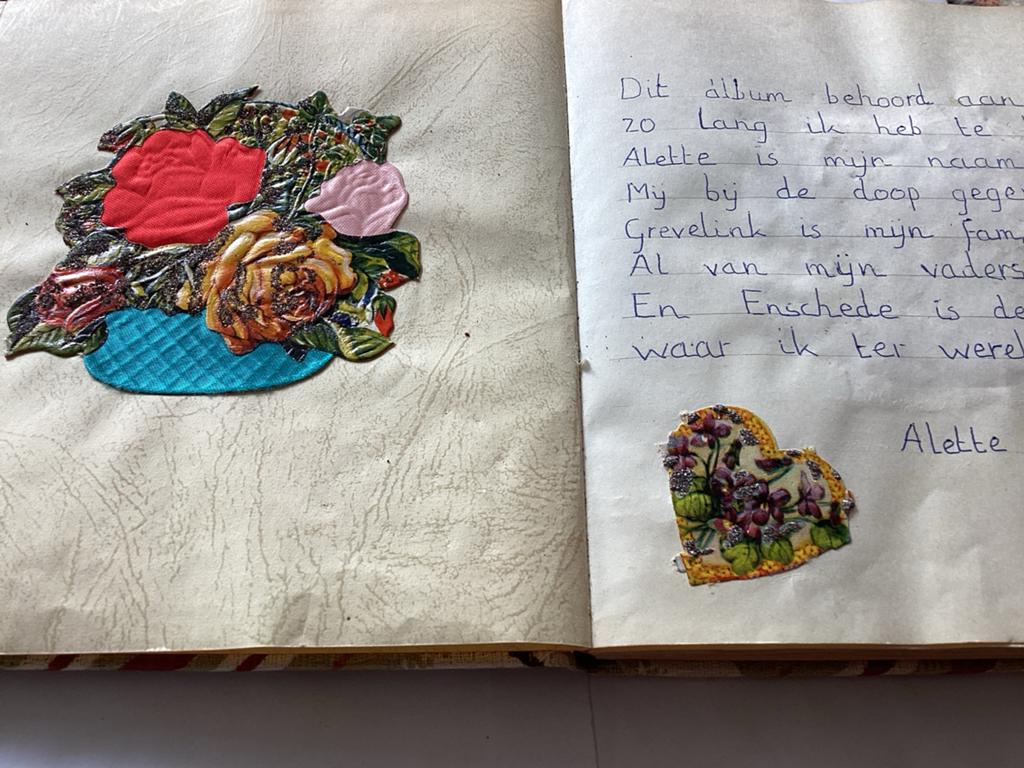 Dit álbum behoord aan
zo lang ik heb te
Alette is mijn naam
Mij bij de doop gege
Grevelink is mijn fam
Al van mijn vaders
En Enschede is de
waar ik ter werel
Alette